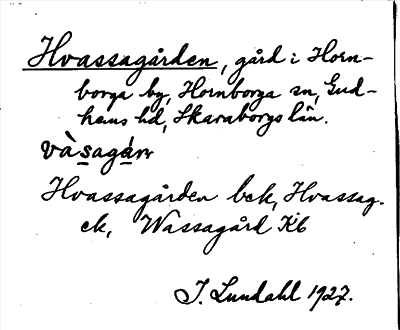 Hvassagården, gård i Horn-
borga by, Hornborga sn, Gud-
hems hd, Skaraborgs län.
vàsagáɳ
Hvassagården bek, Hvassag.
ek, Wassagård Kb
J. Lundahl 1927.